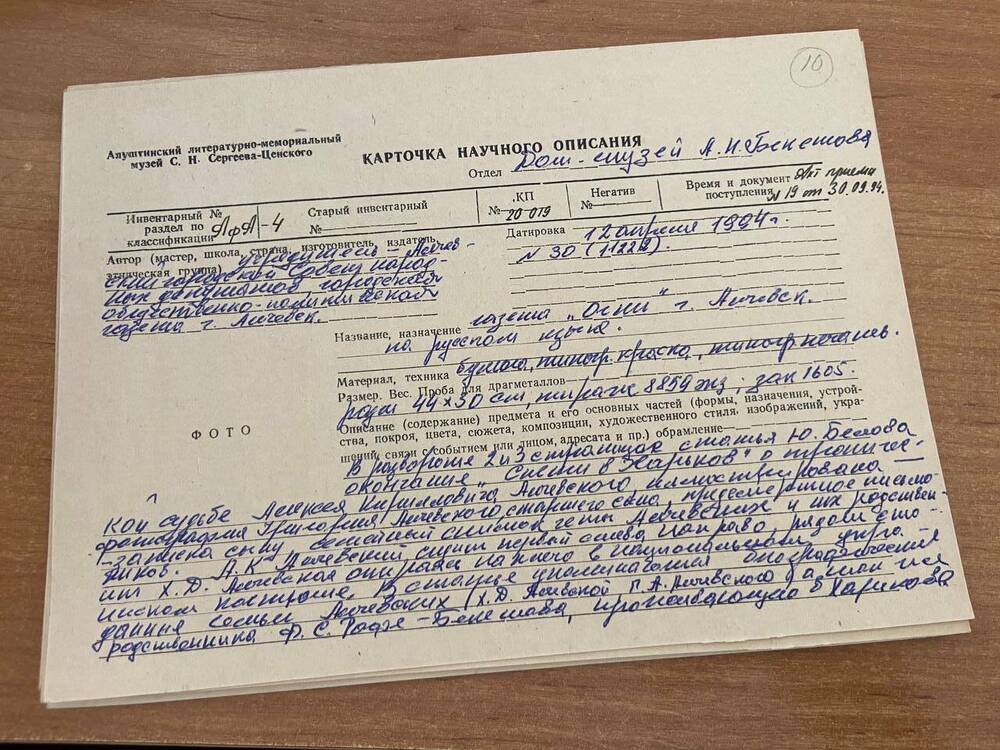 10
Алуштинский литературно-мемориальный
музей С. Н. Сергеева-Ценского
КАРТОЧКА НАУЧНОГО ОПИСАНИЯ
Отдел Дом-музей А.Н.Бекетова
Инвентарный №
раздел по
классификации АфА-4
Старый инвентарный
№
КП
№ 20 019
Негатив
№
Время и документ Акт приема
поступления № 19 от 30.09.94.
Автор (мастер, школа, страна, изготовитель, издатель,
этническая группа) учредитель – Алчев-
ский городской Совет народ-
ных депутатов, городской
общественно-политической
газеты г. Алчевск.
Датировка 12 апреля 1994г.
№ 30 (11222)
Название, назначение газета „Огни" г. Алчевск.
на русском языке.
Материал, техника бумага, типогр. краска, типогр. печать.
Размер. Вес. Проба для драгметаллов
разм 44×30 см, тираж 8859 экз; зак 1605.
Описание (содержание) предмета и его основных частей (формы, назначения, устрой-
ства, покроя, цвета, сюжета, композиции, художественного стиля, изображений, укра-
шений, связи с событием или лицом, адресата и пр.) обрамление
ФОТО
В развороте 2 и 3 страницах статья Ю. Белова
окончание „Спеши в Харьков" о трагичес-
кой судьбе Алексея Кирилловича Алчевского иллюстрирована
фотография Григория Алчевского старшего сына, предсмертное письмо
-записка сыну, семейный снимок четы Алчевских и их родствен-
ников. А.К Алчевский сидит первый слева направо, рядом сто-
ит Х.Д. Алчевская в национальном укра-
инском костюме. В статье упоминаются биографические
данные семьи Алчевских (Х.Д Алчевской Г.А.Алчевского) а так же
родственника Ф.С. Рофе-Бекетова, проживающего в Харькове